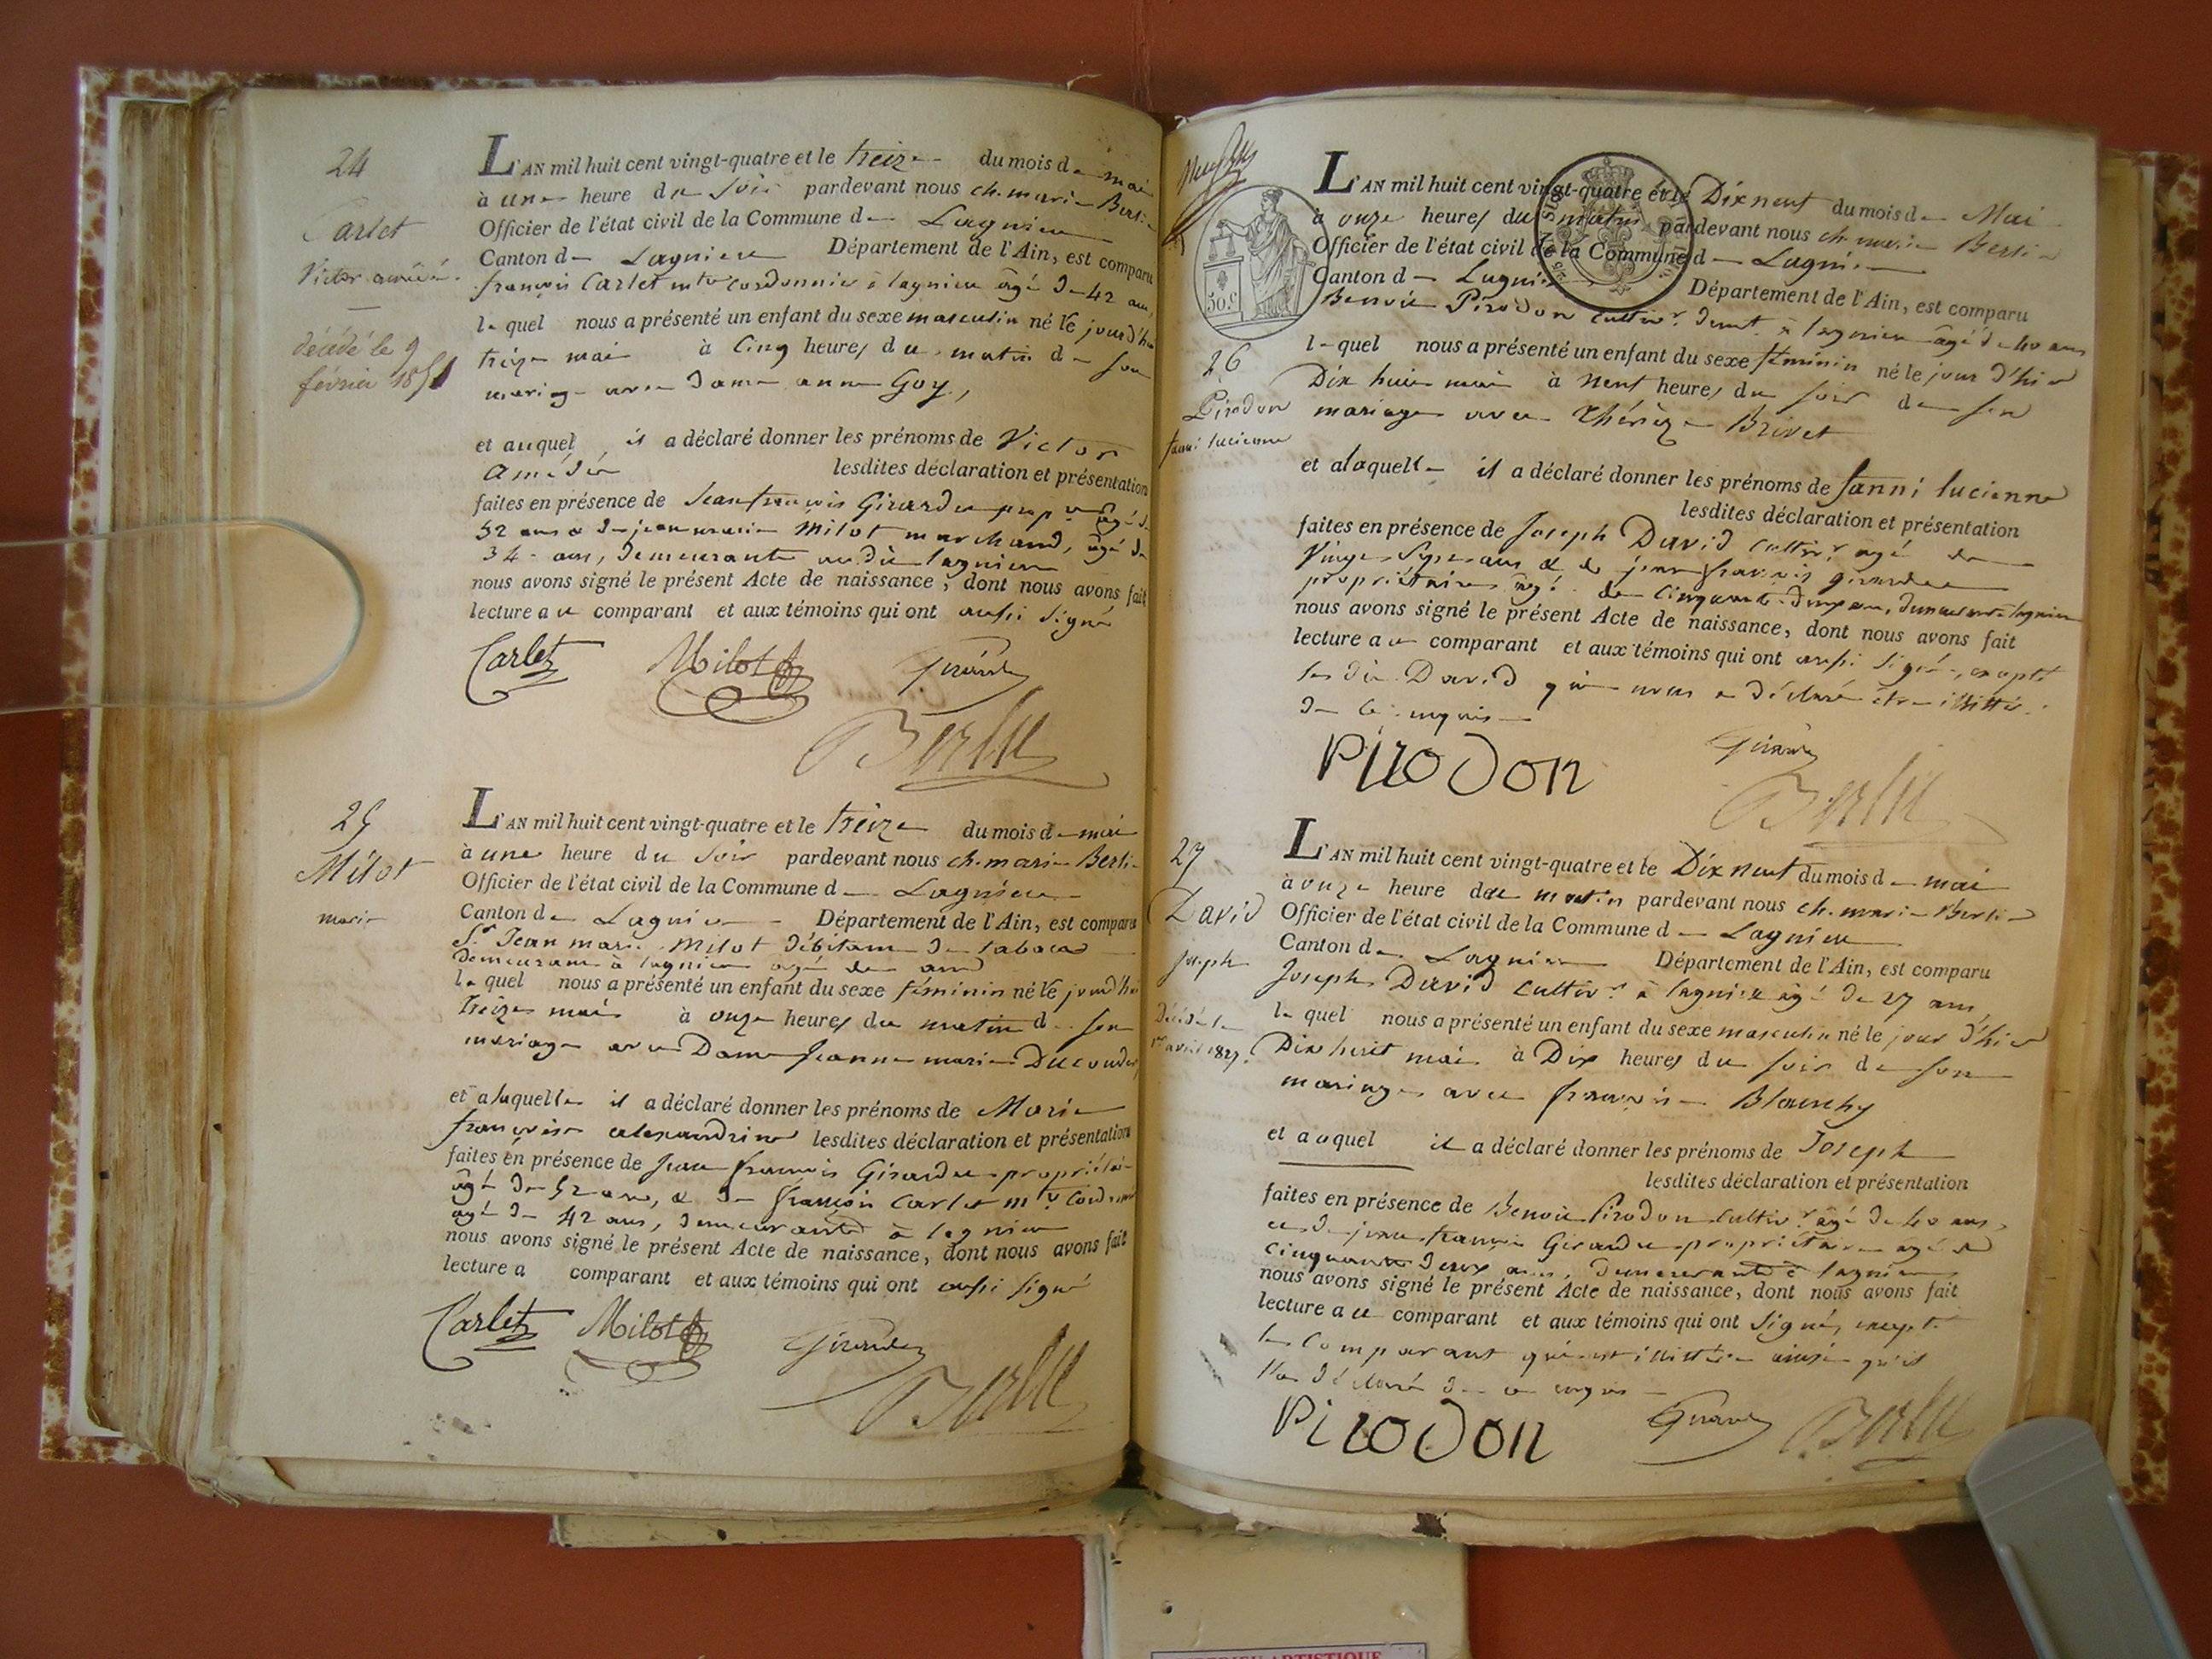 24
Carlet
Victor amédé
décédé le 9
février 1851
L'AN mil huit cent vingt-quatre et le treize du mois de mai
à une heure du soir pardevant nous ch. marie Berli
Officier de l'état civil de la Commune de Lagnieu
Canton de Lagnieu Département de l'Ain, est comparu
françois Carlet mtre cordonnier à lagnieu âgé de 42 ans,
le quel nous a présenté un enfant du sexe masculin né le jourd'hui
treize mai à cinq heures du matin de son
mariage avec dame anne Goy,
et auquel il a déclaré donner les prénoms de Victor
amédée lesdites déclaration et présentation
faites en présence de Jean françois Girardu propre âgé de
52 ans & de jean marie Milot marchand, âgé de
34 ans, demeurants audit lagnieu
nous avons signé le présent Acte de naissance, dont nous avons fait
lecture au comparant et aux témoins qui ont aussi signé
Carlet Milot
25
Milot
marie
L'AN mil huit cent vingt-quatre et le treize du mois de mai
à une heure du soir pardevant nous ch. marie Berli
Officier de l'état civil de la Commune de Lagnieu
Canton de Lagnieu Département de l'Ain, est comparu
Sr Jean marie Milot débitant de tabacs
demeurant à lagnieu agé de ans
le quel nous a présenté un enfant du sexe féminin né le jourd'hui
treize mai à onze heures du matin de son
mariage avec Dame Jeanne marie
et alaquelle il a déclaré donner les prénoms de Marie
françoise alexandrine lesdites déclaration et présentation
faites en présence de Jean françois Girardu propriétaire
âgé de 52 ans, & de françois Carlet mtre
agé de 42 ans, demeurants à lagnieu
nous avons signé le présent Acte de naissance, dont nous avons fait
lecture a comparant et aux témoins qui ont aussi signé
Carlet Milot
26
Pirodon
fanni lucienne
50 c.
L'AN mil huit cent vingt-quatre et le Dix neuf du mois de Mai
à onze heures du matin pardevant nous ch. marie Berli
Officier de l'état civil de la Commune de Lagnieu
Canton de Lagnieu Département de l'Ain, est comparu
Benoit Pirodon cultivr. demt. à lagnieu âgé de 40 ans
le quel nous a présenté un enfant du sexe féminin né le jour d'hier
Dix huit mai à neuf heures du soir de son
mariage avec thérèze Brivet
et alaquelle il a déclaré donner les prénoms de fanni lucienne
lesdites déclaration et présentation
faites en présence de Joseph David cultivr. agé de
Vingt sept ans & de jean françois girardu
propriétaire âgé de cinquante deux ans, demeurants à lagnieu
nous avons signé le présent Acte de naissance, dont nous avons fait
lecture au comparant et aux témoins qui ont aussi signé, excepté
le dit David qui nous a déclaré être
de ce requis
Pirodon
27
David
Joseph
Décédé le
1er avril 1827.
L'AN mil huit cent vingt-quatre et le Dix neuf du mois de mai
à onze heure du matin pardevant nous ch. marie Berli
Officier de l'état civil de la Commune de Lagnieu
Canton de Lagnieu Département de l'Ain, est comparu
Joseph David cultivr. à lagnieu âgé de 27 ans
le quel nous a présenté un enfant du sexe masculin né le jour d'hier
Dix huit mai à Dix heures du soir de son
mariage avec françoise Blanchy
et auquel il a déclaré donner les prénoms de Joseph
lesdites déclaration et présentation
faites en présence de Benoit Pirodon cultivr. âgé de 40 ans
et de jean françois Girardu propriétaire agé de
cinquante deux ans, demeurants à lagnieu
nous avons signé le présent Acte de naissance, dont nous avons fait
lecture au comparant et aux témoins qui ont signés, excepté
le comparant qui est ainsi qu'il
l'a déclaré de ce requis
Pirodon